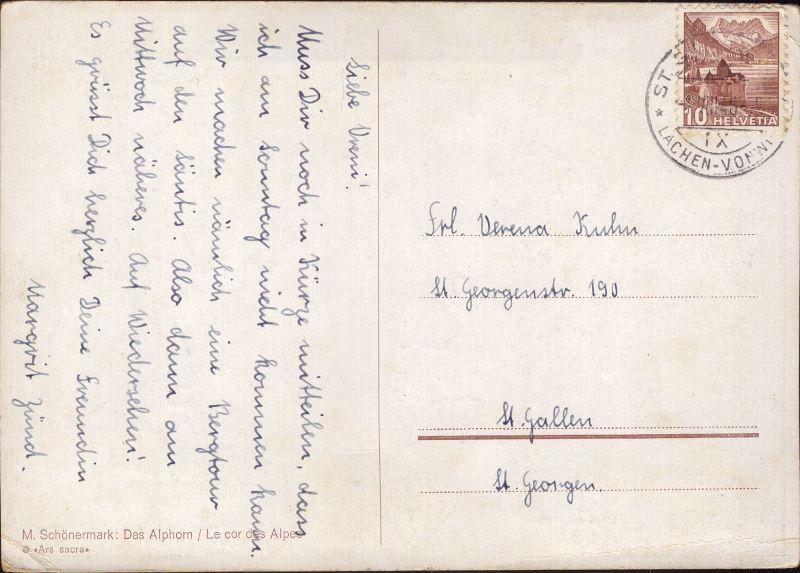 Liebe Vreni!
Muss Dir noch in Kürze mitteilen, dass
ich am Sonntag nicht kommen kann.
Wir machen nämlich eine Bergtour
auf den Säntis. Also dann am
Mittwoch näheres. Auf Wiedersehen!
Es grüsst Dich herzlich Deine Freundin
Margrit Zünd.
M. Schönermark: Das Alphorn / Le cor des Alpes
«Ars sacra»
10 HELVETIA
ST.
LACHEN-VONWIL
IX
Frl. Verena Kuhn
St. Georgenstr. 190
St. Gallen
St. Georgen.